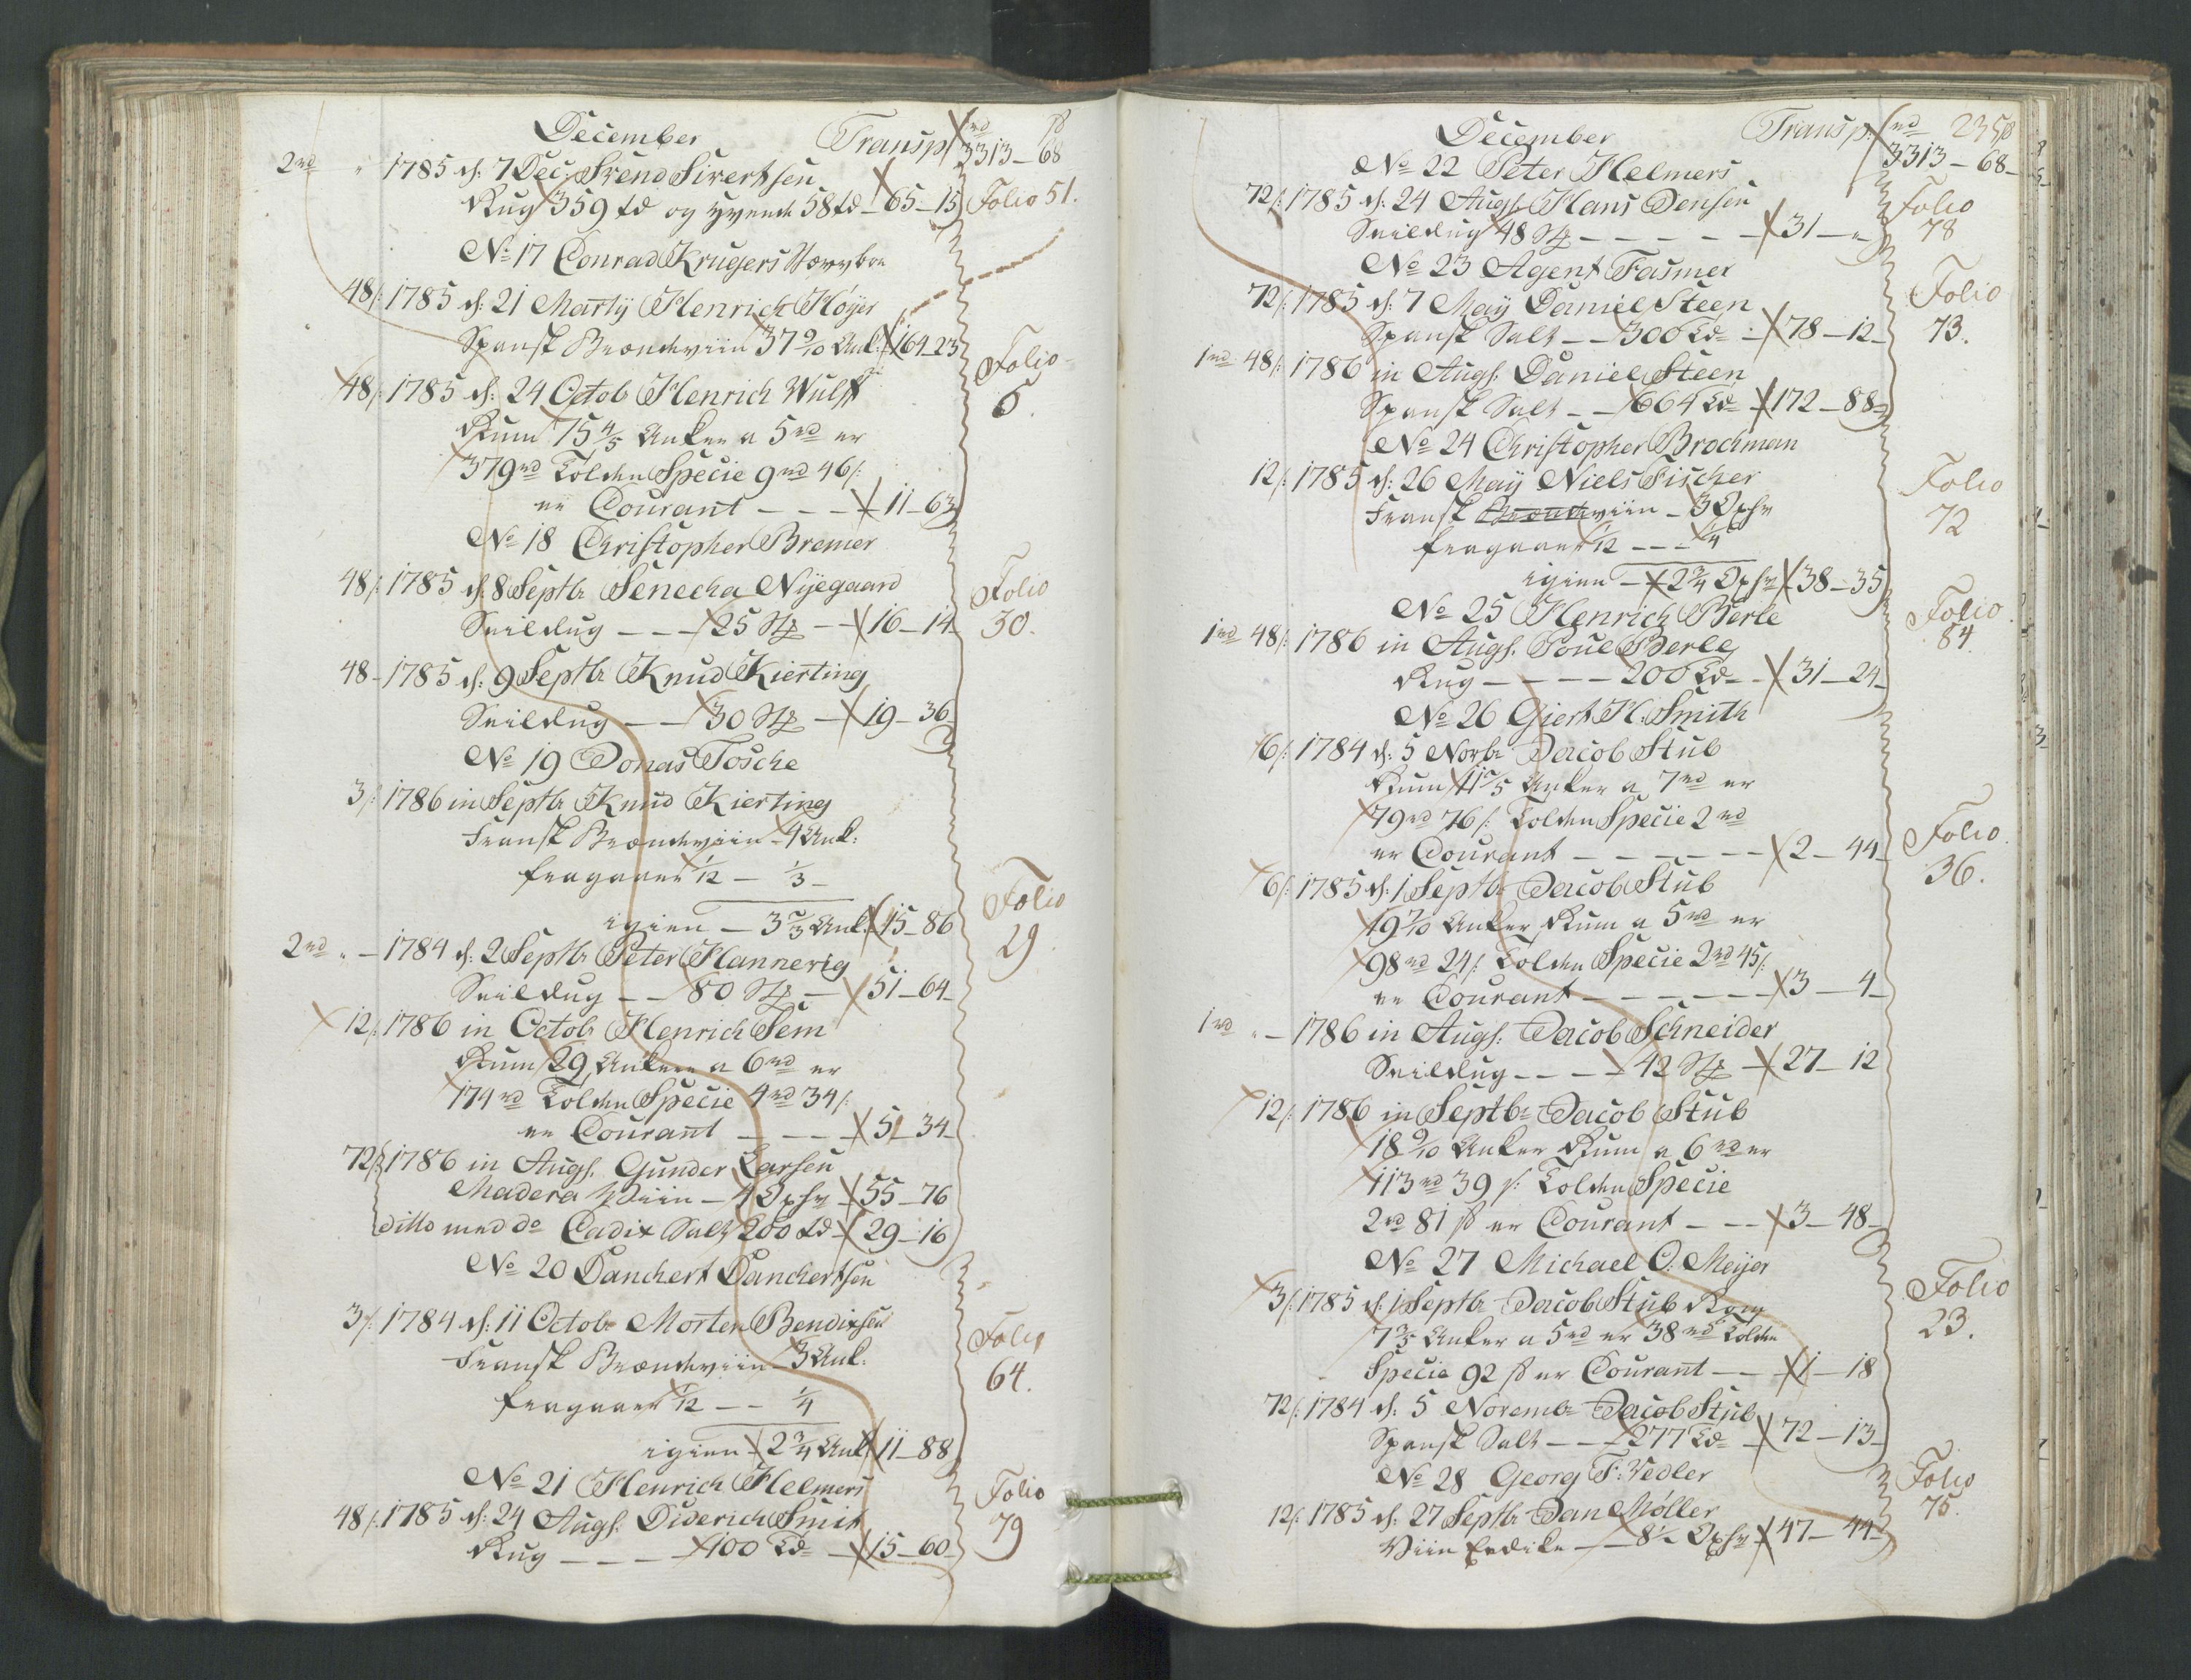 December Transp rd ß
3313 - 68
2rd " 1785 d: 7 Dec: Svend Sivertsen
Rug 359 td og 58 td - 65 - 15 Folio 51.
No 17 Conrad Krugers
48/: 1785 d: 21 Marty Henrich Høyer
Spansk Brændeviin 37 9/10 Ank: 164 - 23
Folio
6.
48/: 1785 d: 24 Octob Henrich Wulff
Rum 75 4/5 Anker a 5 rd er
379 rd Tolden Specie 9 rd 46/:
er Courant - - - 11 - 63
No 18 Christopher Bremer
48/: 1785 d: 8 Septbr Senecha Nyegaard Folio
Seildug - - - 25 - - 16 - 14 30.
48 - 1785 d: 9 Septbr Knud Kierting
Seildug - - 30 - 19 - 36
No 19 Jonas Tosche
3/: 1786 in Septbr Knud Kierting
Fransk Brændeviin - 4 Ank:
fragaaer 1/12 - 1/3 -
igien - 3 2/3 Ank: 45 - 86
Folio
29
2rd " - 1784 d: 2 Septbr Peter Hannerig
Seildug - - 80 - 51 - 64
12/: 1786 in Octobr Henrich Sem
Rum 29 Ankere a 6 rd er
174 rd Tolden Specie 4 rd 34/:
er Courant - - - 5 - 34
72/: 1786 in Augs. Gunder Larsen
Madera Viin - 4 Oxhv 55 - 76
ditto med do Cadix Salt 200 td - 29 - 16
No 20 Danchert Danchertsen
3/: 1784 d: 11 Octobr Morten Bendixsen Folio
Fransk Brændeviin 3 Ank: 64.
fragaaer 1/12 - - 1/4
igien - 2 3/4 Ank 11 - 88
No 21 Henrich Helmers Folio
48/: 1785 d: 24 Augs. Diderich Smit 79
Rug - - - - 100 Td - 15 - 60
December Transp: rd 235 ß
3313 - 68 -
No 22 Peter Helmers
72/: 1785 d: 24 Augs. Hans Jensen Folio
Seildug 48 - - - - - 31 - " 78
No 23 Agent Fasmer
72/: 1785 d: 7 May Daniel Steen Folio
Spansk Salt - - 300 Td - 78 - 12 73.
1rd 48/: 1786 in Augs. Daniel Steen
Spansk Salt - - 664 Td 172 - 88
No 24 Christopher Brochman
12/: 1785 d: 26 May Niels Fischer Folio
Fransk viin - 3 Oxhv 72
fragaaer 1/12 - - - 1/4
igien - 2 3/4 Oxhv 38 - 35
No 25 Henrich Berle Folio.
1rd 48/: 1786 in Augs. Poul Berle 84.
Rug - - - - 200 Td - 31 - 24
No 26 Giert H: Smith
6/: 1784 d: 5 Novbr Jacob Stub
Rum 11 2/5 Anker a 7 rd er
79 rd 76/: Tolden Specie 2 rd
er Courant - - - - - 2 - 44 Folio.
36.
6/: 1785 d: 1 Septbr Jacob Stub
19 7/10 Anker Rum a 5 rd er
98 rd 24/: Tolden Specie 2 rd 45/:
er Courant - - - - - - 3 - 4
1rd " - 1786 in Augs: Jacob Schneider
Seildug - - - - 42 - 27 - 12
12/: 1786 in Septbr Jacob Stub
18 9/10 Anker Rum a 6 rd er
113 rd 39 ß: Tolden Specie
2 rd 81 ß er Courant - - - 3 - 48
No 27 Michael O: Meyer
3/: 1785 d: 1 Septbr Jacob Stub Rom Folio
7 3/5 Anker a 5 rd er 38 rd Tolden 23.
Specie 92 ß er Courant - - 1 - 18
72/: 1784 d: 5 Novembr Jacob Stub
Spansk Salt - - 277 Td - 72 - 13
No 28 Georg F: Vedler Folio
12/: 1785 d: 27 Septbr Jan Møller 75.
Viin Eedike - - 8 1/2 Oxhv 47 - 44